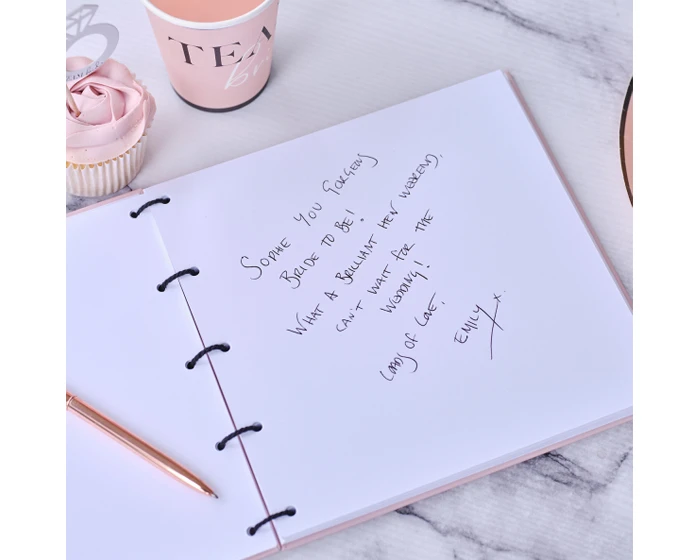 TEA
Sophie You Gorgeous
Bride to be!
What a brilliant hen weekend,
can't wait for the
wedding!
Loads of love,
Emily x.